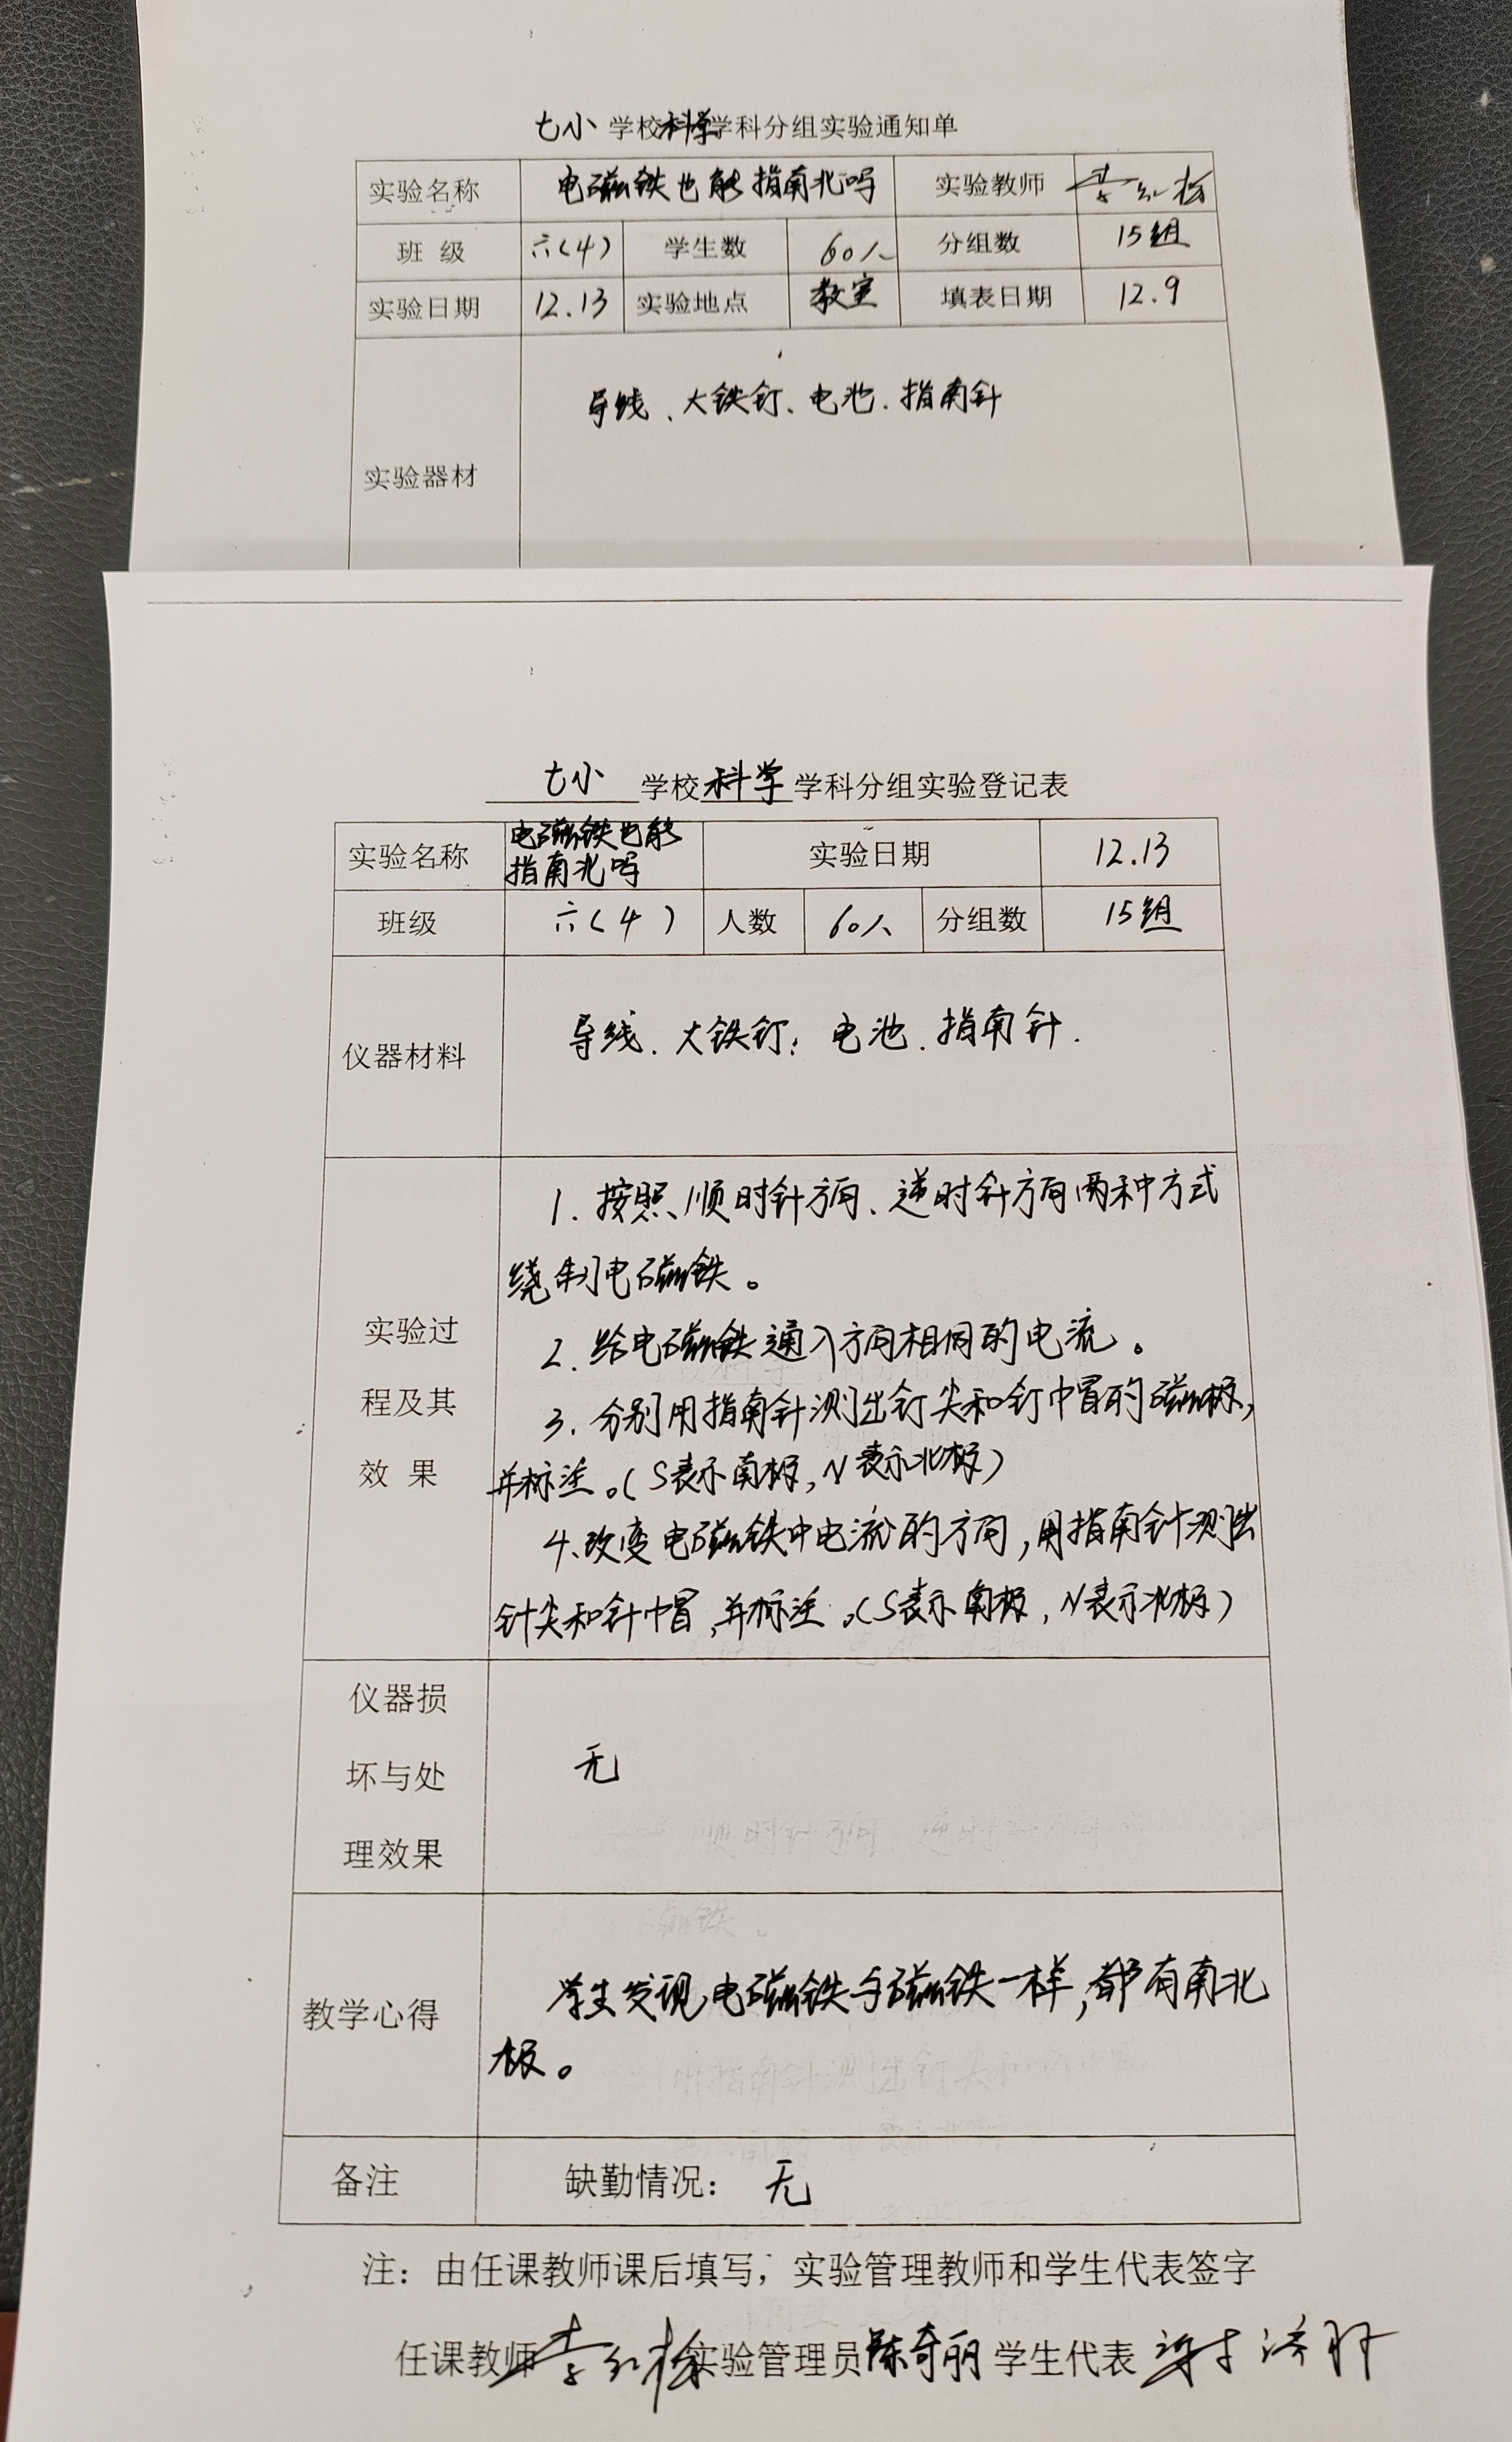 七小 学校科学学科分组实验通知单
实验名称 电磁铁也能指南北吗 实验教师
班 级 六(4) 学生数 60人 分组数 15组
实验日期 12.13 实验地点 教室 填表日期 12.9
导线、大铁钉、电池、指南针
实验器材
七小 学校科学学科分组实验登记表
实验名称 电磁铁也能指南北吗 实验日期 12.13
班级 六(4) 人数 60人 分组数 15组
仪器材料 导线、大铁钉、电池、指南针.
实验过程及其效果
1. 按照顺时针方向、逆时针方向两种方式
绕制电磁铁。
2. 给电磁铁通入方向相同的电流。
3. 分别用指南针测出钉尖和钉帽的磁极,
并标注。(S表示南极,N表示北极)
4、改变电磁铁中电流的方向,用指南针测出
针尖和针帽,并标注。(S表示南极,N表示北极)
仪器损坏与处理效果 无
教学心得
学生发现,电磁铁与磁铁一样,都有南北
极。
备注 缺勤情况: 无
注:由任课教师课后填写,实验管理教师和学生代表签字
任课教师 实验管理员陈奇丽 学生代表